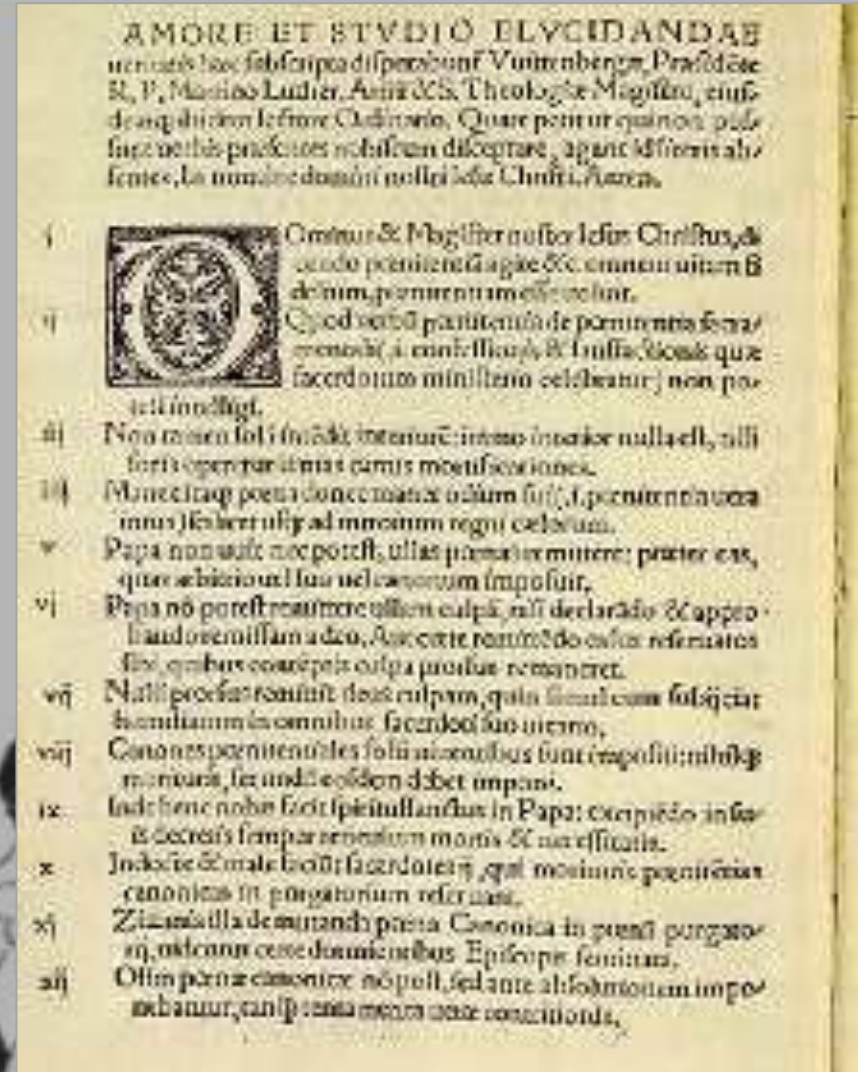 AMORE ET STVDIO ELVCIDANDAE
ueritatis haec subscripta disputabunt Vuittenbergæ, Præsidẽte
R. P. Martino Luther, Artiũ & S. Theologiæ Magistro, eius-
dem ibidem lectore Ordinario. Quare petit ut qui non pos-
sunt uerbis præsentes nobiscum disceptare, agant id literis ab-
sentes. In nomine domini nostri Iesu Christi. Amen.
i Ominus & Magister noster Iesus Christus, di
cendo pœnitentiã agite &c. omnem uitam fi
delium, pœnitentiam esse uoluit.
ij Quod uerbũ pœnitentia de pœnitentia sacra-
mentali(.i. confessionis & satisfactionis quæ
sacerdotum ministerio celebratur) non po-
test intelligi.
iij Non tamen solã intẽdit interiorẽ: immo interior nulla est, nisi
foris operetur uarias carnis mortificationes.
iiij Manet itaqꝫ pœna donec manet odium sui(.i. pœnitentia uera
intus) scilicet usqꝫ ad introitum regni cælorum.
v Papa non uult nec potest, ullas pœnas remittere: præter eas,
quas arbitrio uel suo uel canonum imposuit.
vj Papa nõ potest remittere ullam culpã, nisi declarãdo & appro-
bando remissam a deo, Aut certe remittẽdo casus reseruatos
sibi, quibus contẽptis culpa prorsus remaneret.
vij Nulli prorsus remittit deus culpam, quin simul eum subijciat
humiliatum in omnibus sacerdoti suo uicario.
viij Canones pœnitentiales solũ uiuentibus sunt impositi: nihilqꝫ
morituris, secundũ eosdem debet imponi.
ix Inde bene nobis facit spiritussanctus in Papa: excipiẽdo in su-
is decretis semper articulum mortis & necessitatis.
x Indocte & male faciũt sacerdotes ij, qui morituris pœnitẽtias
canonicas in purgatorium reseruant.
xj Zizania illa de mutanda pœna Canonica in pœnã purgato-
rij, uidentur certe dormientibus Episcopis seminata.
xij Olim pœnæ canonicæ nõ post, sed ante absolutionem impo-
nebantur, tanqꝫ tentamenta ueræ contritionis.